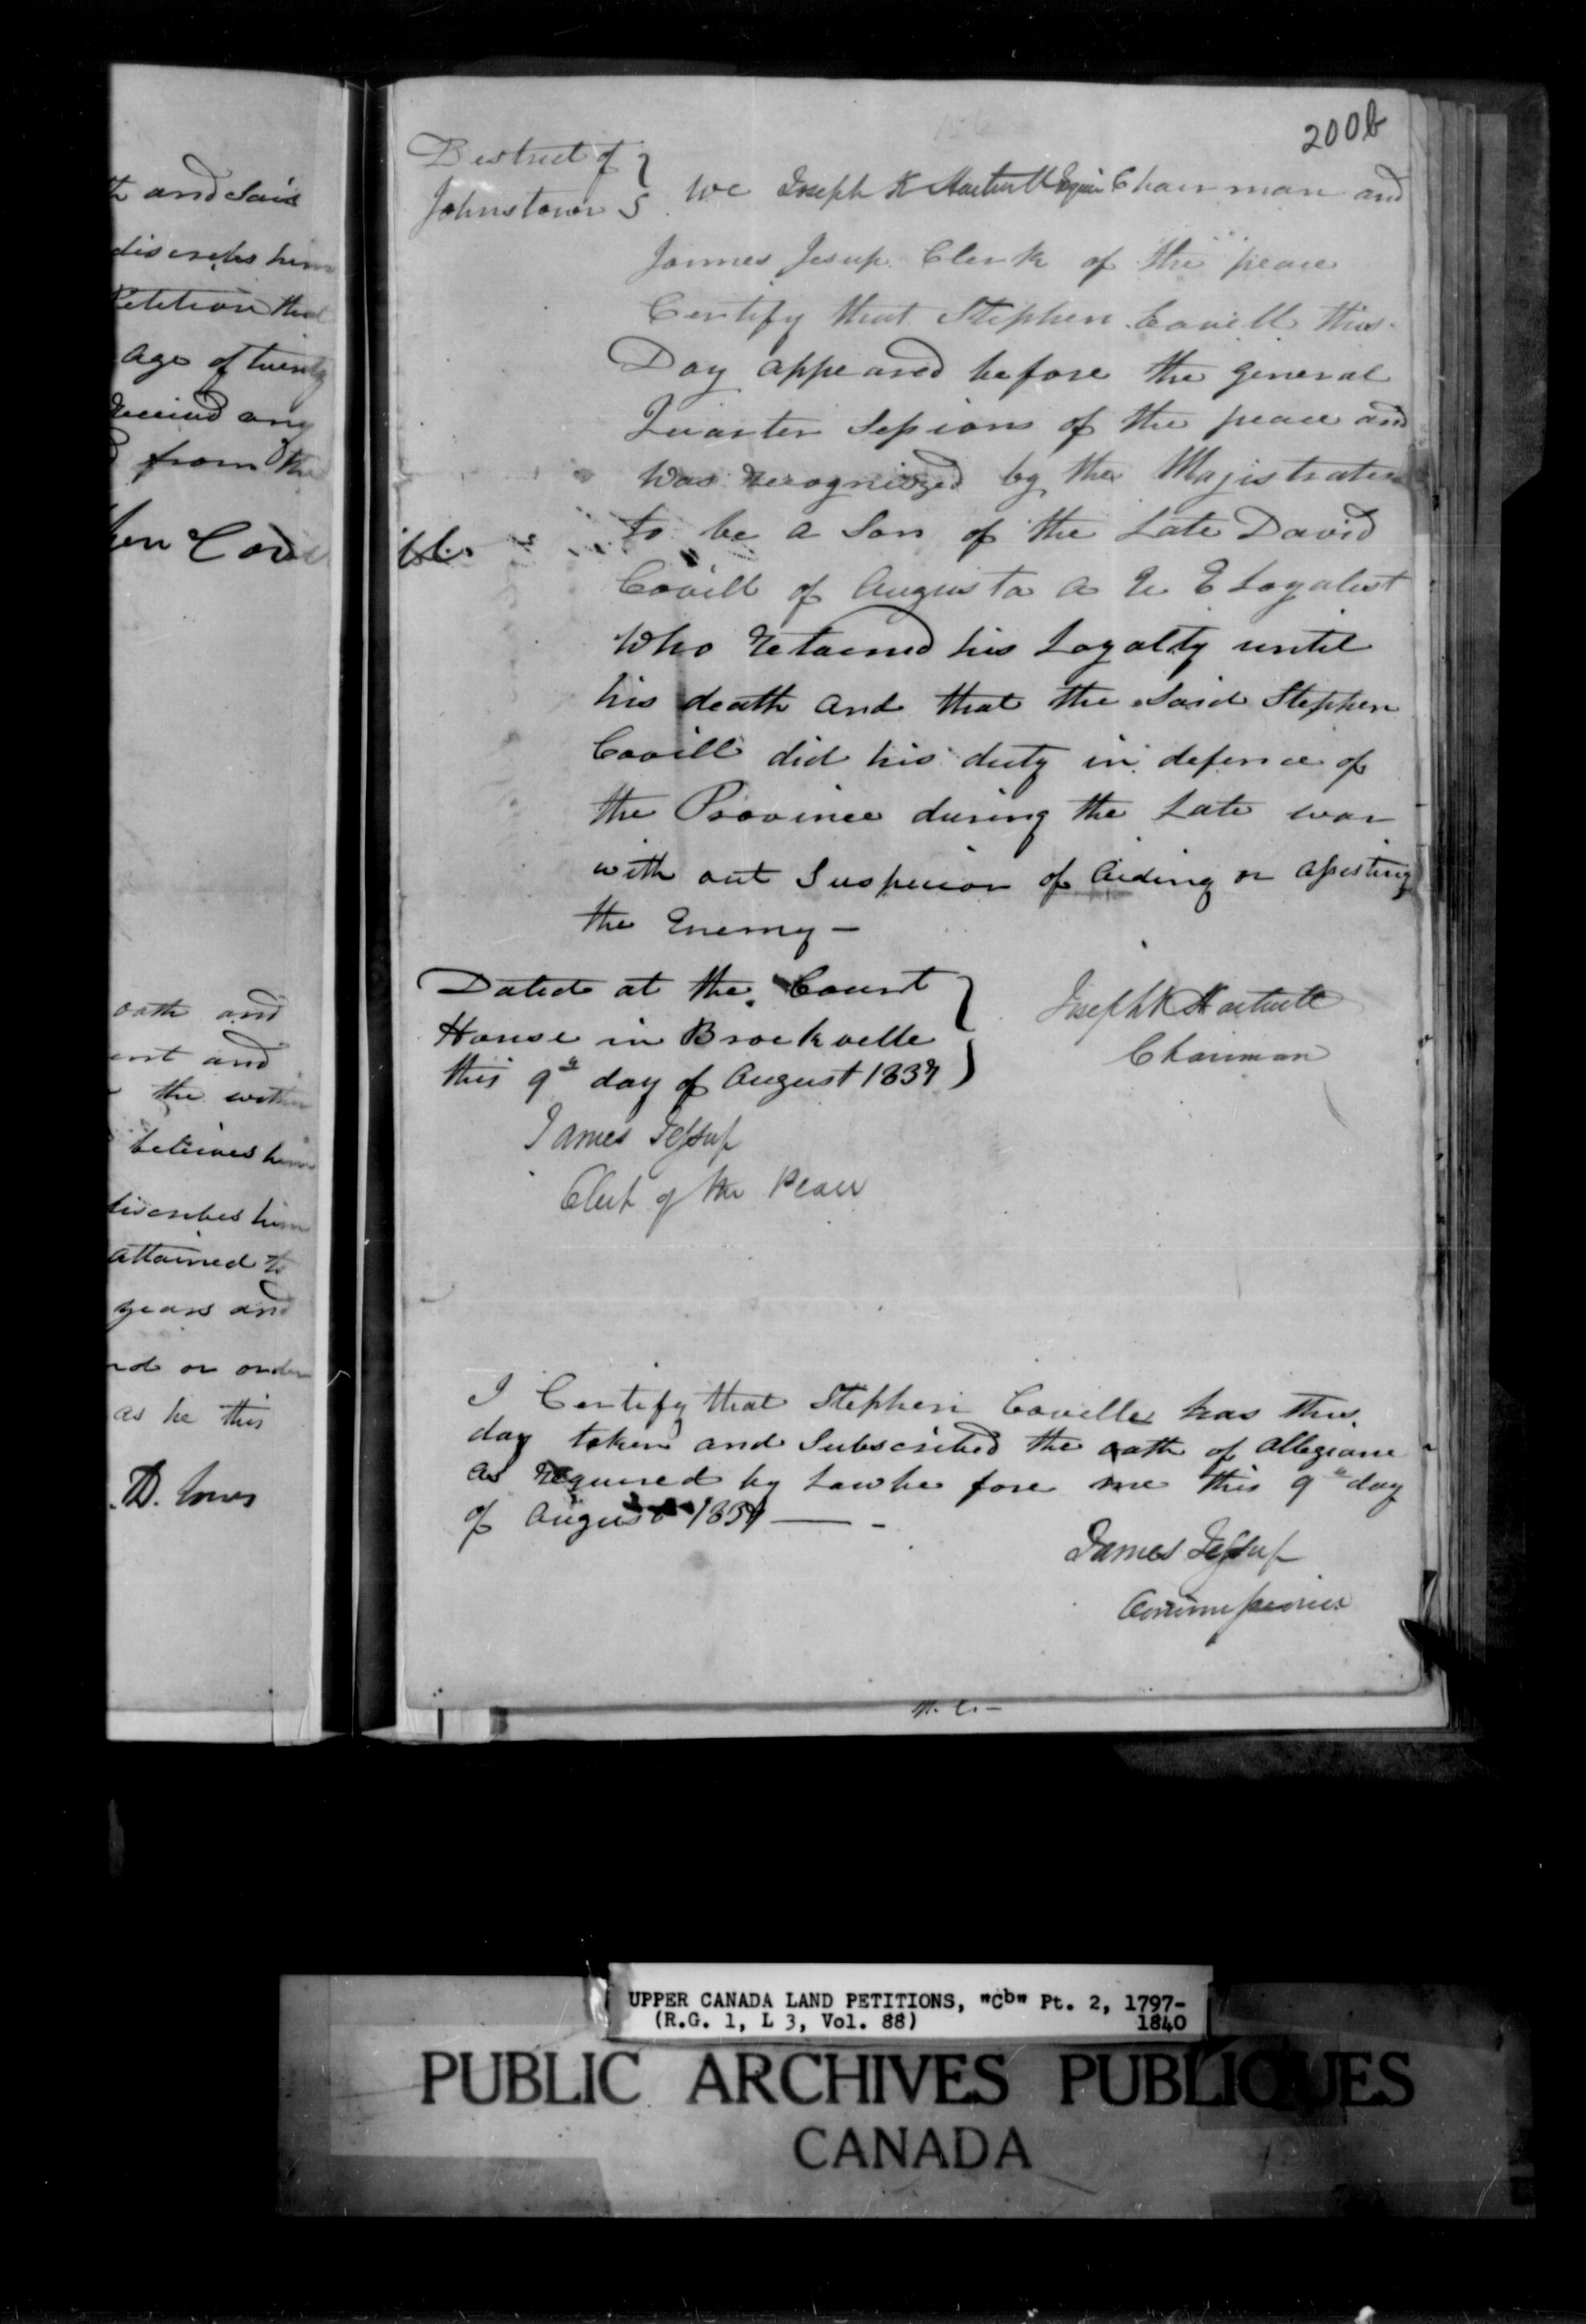 th and Said
discribes him
Petition that
age of twenty
Received any
from the
hen Covill
oath and
ent and
the within
believes him
discribes him
attained to
years and
nd or order
as he this
D. Jones
200b
District of }
Johnstown S. We Joseph K Hartwell Esquire Chairman and
James Jesup Clerk of the peace
Certify that Stephen Covill this
Day appeared before the General
Quarter Sessions of the peace and
was recognized by the Majistrates
to be a Son of the Late David
Covill of Augusta a U E Loyalist
Who retained his Loyalty until
his death and that the Said Stephen
Covill did his duty in defence of
the Province during the Late war
with out Suspicion of aiding or assisting
the Enemy —
Dated at the Court }
House in Brockville
this 9th day of August 1837 )
Joseph K Hartwell
Chairman
James Jessup
Clerk of the Peace
I Certify that Stephen Coville has this
day taken and Subscribed the oath of allegiance
as required by Law before me this 9th day
of August 1837 —
James Jessup
Commissioner
UPPER CANADA LAND PETITIONS, "Cb" Pt. 2, 1797-
(R.G. 1, L 3, Vol. 88) 1840
PUBLIC ARCHIVES PUBLIQUES
CANADA